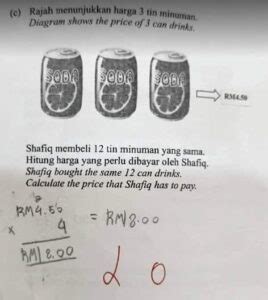 (c) Rajah menunjukkan harga 3 tin minuman.
Diagram shows the price of 3 can drinks.
SODA SODA SODA
RM4.50
Shafiq membeli 12 tin minuman yang sama.
Hitung harga yang perlu dibayar oleh Shafiq.
Shafiq bought the same 12 can drinks.
Calculate the price that Shafiq has to pay.
RM4.50 = RM18.00
x 4
RM18.00
0